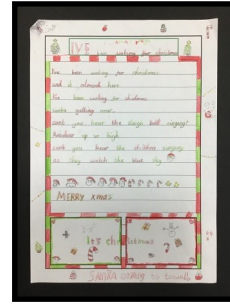 I'VE
been waiting for christmas
I've been waiting for christmas
and it almost here
I've been waiting for christmas
santa getting near
can't you hear the sleigh bell ringing?
Reindeer up so high
can't you hear the children singing
as they watch the sky
MERRY XMAS
It's christmas
SANTA coming to town